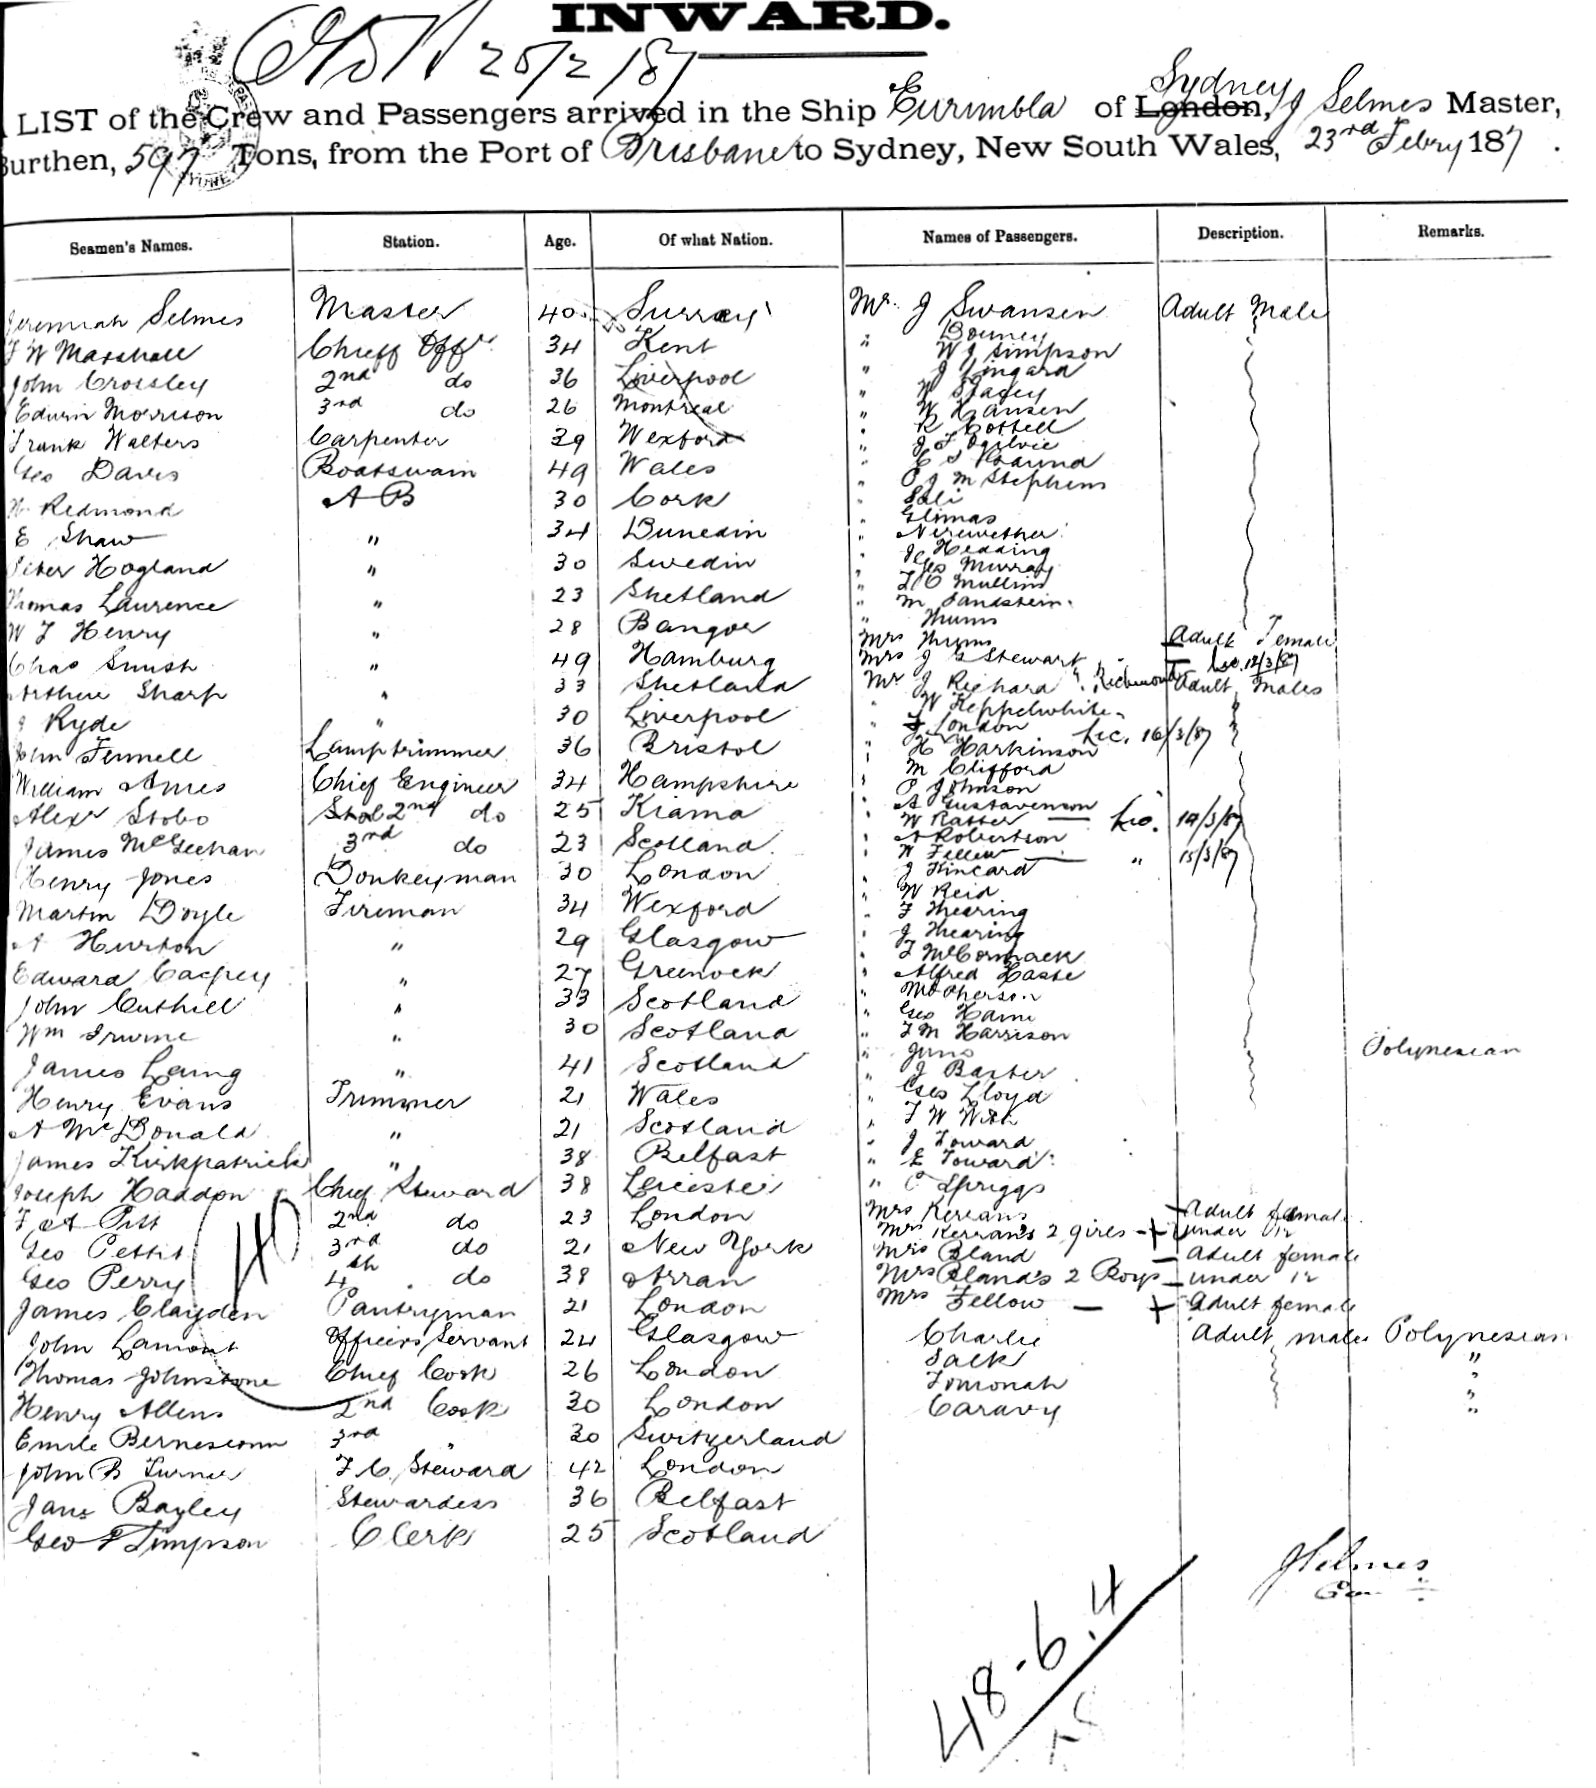 INWARD.
25/2/87
LIST of the Crew and Passengers arrived in the Ship Eurimbla of London, Sydney J Selmes Master,
Burthen, 597 Tons, from the Port of Brisbane to Sydney, New South Wales, 23rd Febry 187
Seamen's Names. Station. Age. Of what Nation. Names of Passengers. Description. Remarks.
Jeremiah Selmes Master 40 Surrey
J W Marshall Chieff Offr 34 Kent
John Crossley 2nd do 36 Liverpool
Edwin Morrison 3rd do 26 Montreal
Frank Walters Carpenter 39 Wexford
Geo Davis Boatswain 49 Wales
Redmond A B 30 Cork
E Shaw " 34 Dunedin
Peter Hogland " 30 Swedin
Thomas Laurence " 23 Shetland
W J Henry " 28 Bangor
Chas " 49 Hamburg
Arthur Sharp " 33 Shetland
J Ryde " 30 Liverpool
John Fennell Lamptrimmer 36 Bristol
William Ames Chief Engineer 34 Hampshire
Alexr Stobo 2nd do 25 Kiama
James McGeehan 3rd do 23 Scotland
Henry Jones Donkeyman 30 London
Martin Doyle Fireman 34 Wexford
A Hurton " 29 Glasgow
Edward " 27 Greenock
John Cuthill " 33 Scotland
Wm Irwine " 30 Scotland
James Laing " 41 Scotland
Henry Evans Trimmer 21 Wales
A McDonald " 21 Scotland
James Kirkpatrick " 38 Belfast
Joseph Haddon Chief Steward 38 Leicester
F A Pitt 2nd do 23 London
Geo Pettit 3rd do 21 New York
Geo Perry 4th do 38 Arran
James Clayden Pantryman 21 London
John Lamont Officers Servant 24 Glasgow
Thomas Johnstone Chief Cook 26 London
Henry Allens 2nd Cook 30 London
Emile 3rd " 30 Switzerland
John B Turner F C Steward 42 London
Jane Bayley Stewardess 36 Belfast
Geo Simpson Clerk 25 Scotland
Mr J Swansen Adult Male
"
" W J Simpson
" J Lingard
" W Stacey
" W Hansen
" R Cottell
" J F Ogilvie
" C S
" P J M Stephens
" Sali
" Glimas
" Nerewether
" Jc Hedding
" Geo Murray
" T C Mullins
" M Sandstein
" Thums
Mrs Thums Adult Female
Mrs J G Stewart Lic. 12/3/87
Mr J Richard Richmond Adult Males
" W Heppelwhite
" J London Lic. 16/3/87
" H Harkinson
" M Clifford
" P Johnson
" A Gustavenson
" W Ratter Lic. 14/3/87
" A Robertson
" W Fellew " 15/3/87
" J Kincard
" W Reid
" F Thearing
" J Thearing
" J McCormack
" Alfred Haste
" McPherson
" Geo Hami
" F M Harrison
" Juno Polynesian
" J Baxter
" Geo Lloyd
" F W With
" J Toward
" E Toward
" C Spriggs
Mrs Kerrans Adult female
Mrs Kerran's 2 girls under 12
Mrs Bland Adult female
Mrs Bland's 2 Boys under 12
Mrs Fellow Adult female
Charlie Adult males Polynesian
Salk "
Tomonah "
Caravy "
JSelmes
48.6.4